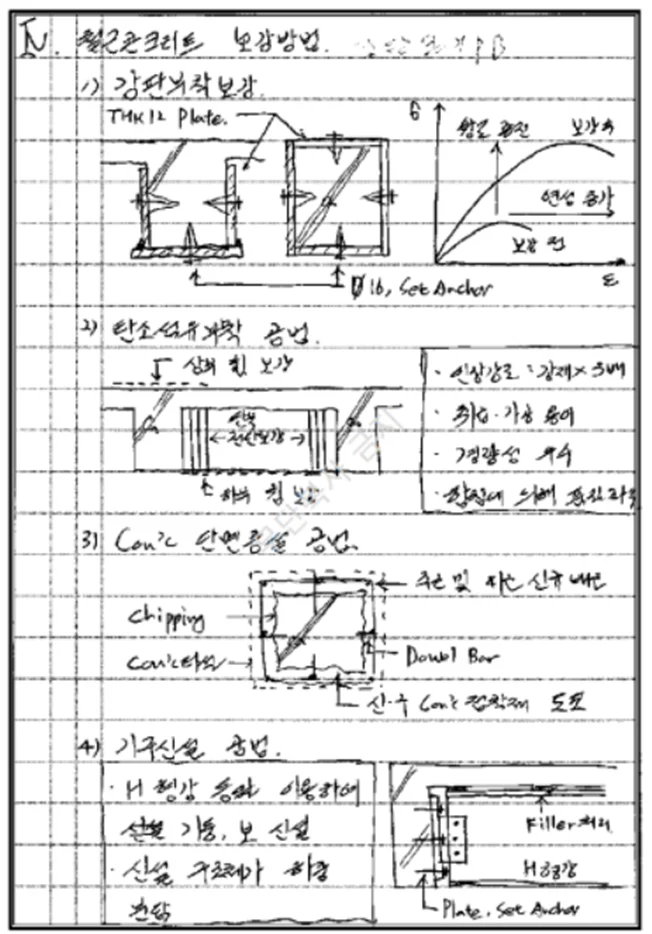 Ⅳ. 철근콘크리트 보강방법.
1) 강판부착보강.
THK12 Plate.
σ
강도 증진
보강 후
연성 증가
보강 전
ε
Ø16, Set Anchor
2) 탄소섬유부착 공법.
상부 휨 보강
단부
←전단보강→
하부 휨 보강
· 인장강도 : 강재×
· 취급·가공 용이
· 경량성 우수
· 에 의해
3) Con'c 단면증설 공법.
Chipping
주근 및 신규 배근
Con'c타설
Dowel Bar
신·구 Con'c 접착제 도포
4) 기구신설 공법.
· H 형강 등을 이용하여
신설 기둥, 보 신설
· 신설 구조체가 하중
부담
Filler처리
H형강
Plate, Set Anchor
무단복사 금지